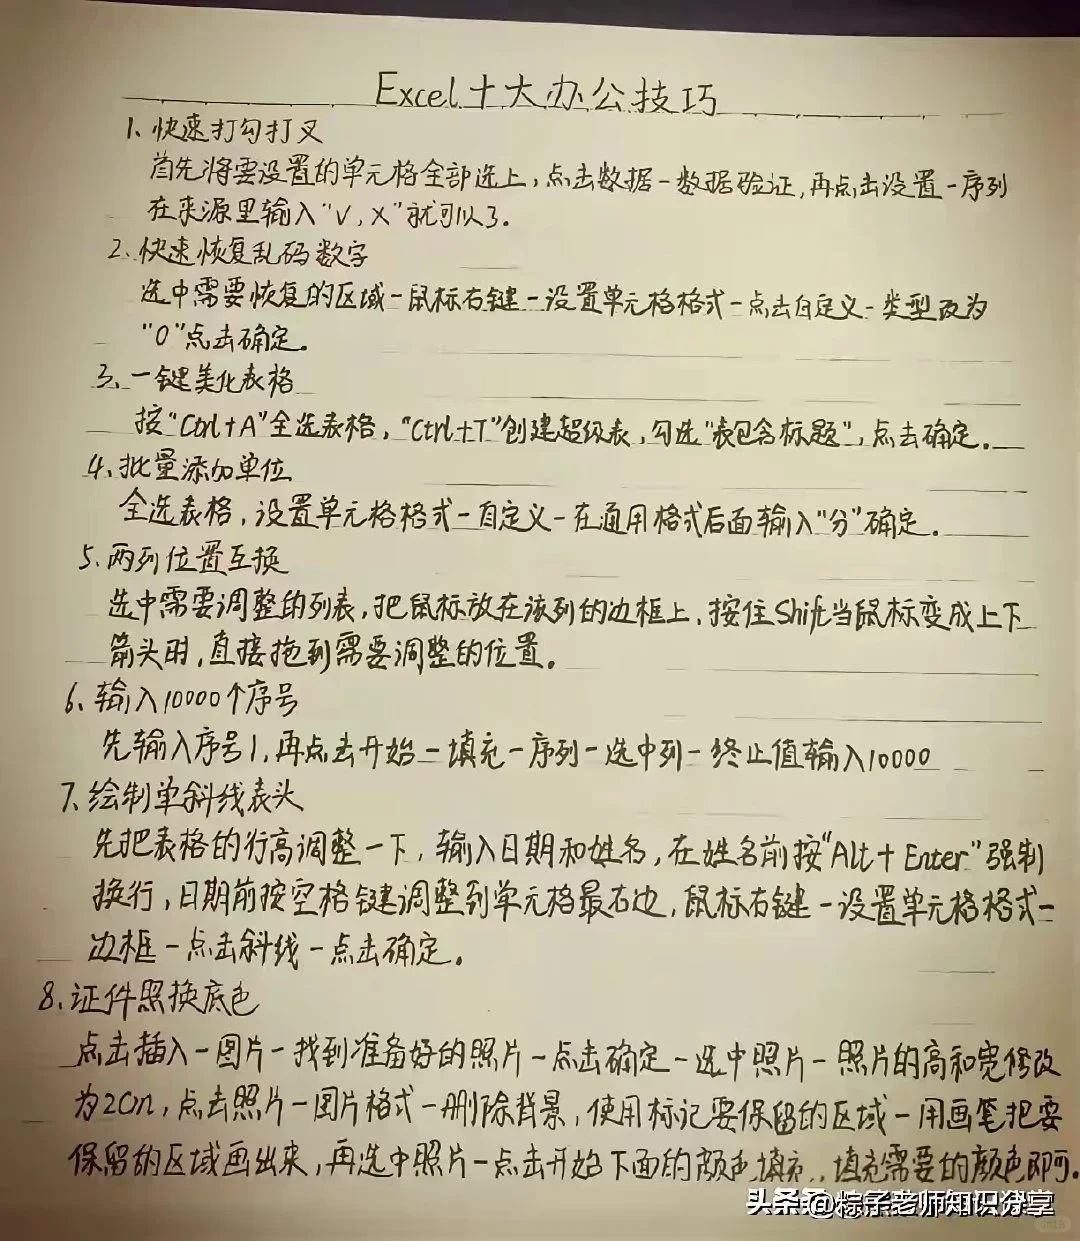 Excel十大办公技巧
1、快速打勾打叉
首先将要设置的单元格全部选上，点击数据－数据验证，再点击设置－序列
在来源里输入“√，×”就可以了。
2、快速恢复乱码数字
选中需要恢复的区域－鼠标右键－设置单元格格式－点击自定义－类型改为
“0”点击确定。
3、一键美化表格
按“Ctrl+A”全选表格，“Ctrl+T”创建超级表，勾选“表包含标题”，点击确定。
4、批量添加单位
全选表格，设置单元格格式－自定义－在通用格式后面输入“分”确定。
5、两列位置互换
选中需要调整的列表，把鼠标放在该列的边框上，按住Shift当鼠标变成上下
箭头时，直接拖到需要调整的位置。
6、输入10000个序号
先输入序号1，再点击开始－填充－序列－选中列－终止值输入10000
7、绘制单斜线表头
先把表格的行高调整一下，输入日期和姓名，在姓名前按“Alt+Enter”强制
换行，日期前按空格键调整到单元格最右边，鼠标右键－设置单元格格式－
边框－点击斜线－点击确定。
8、证件照换底色
点击插入－图片－找到准备好的照片－点击确定－选中照片－照片的高和宽修改
为2cm，点击照片－图片格式－删除背景，使用标记要保留的区域－用画笔把要
保留的区域画出来，再选中照片－点击开始下面的颜色填充，填充需要的颜色即可。
头条@粽子老师知识分享